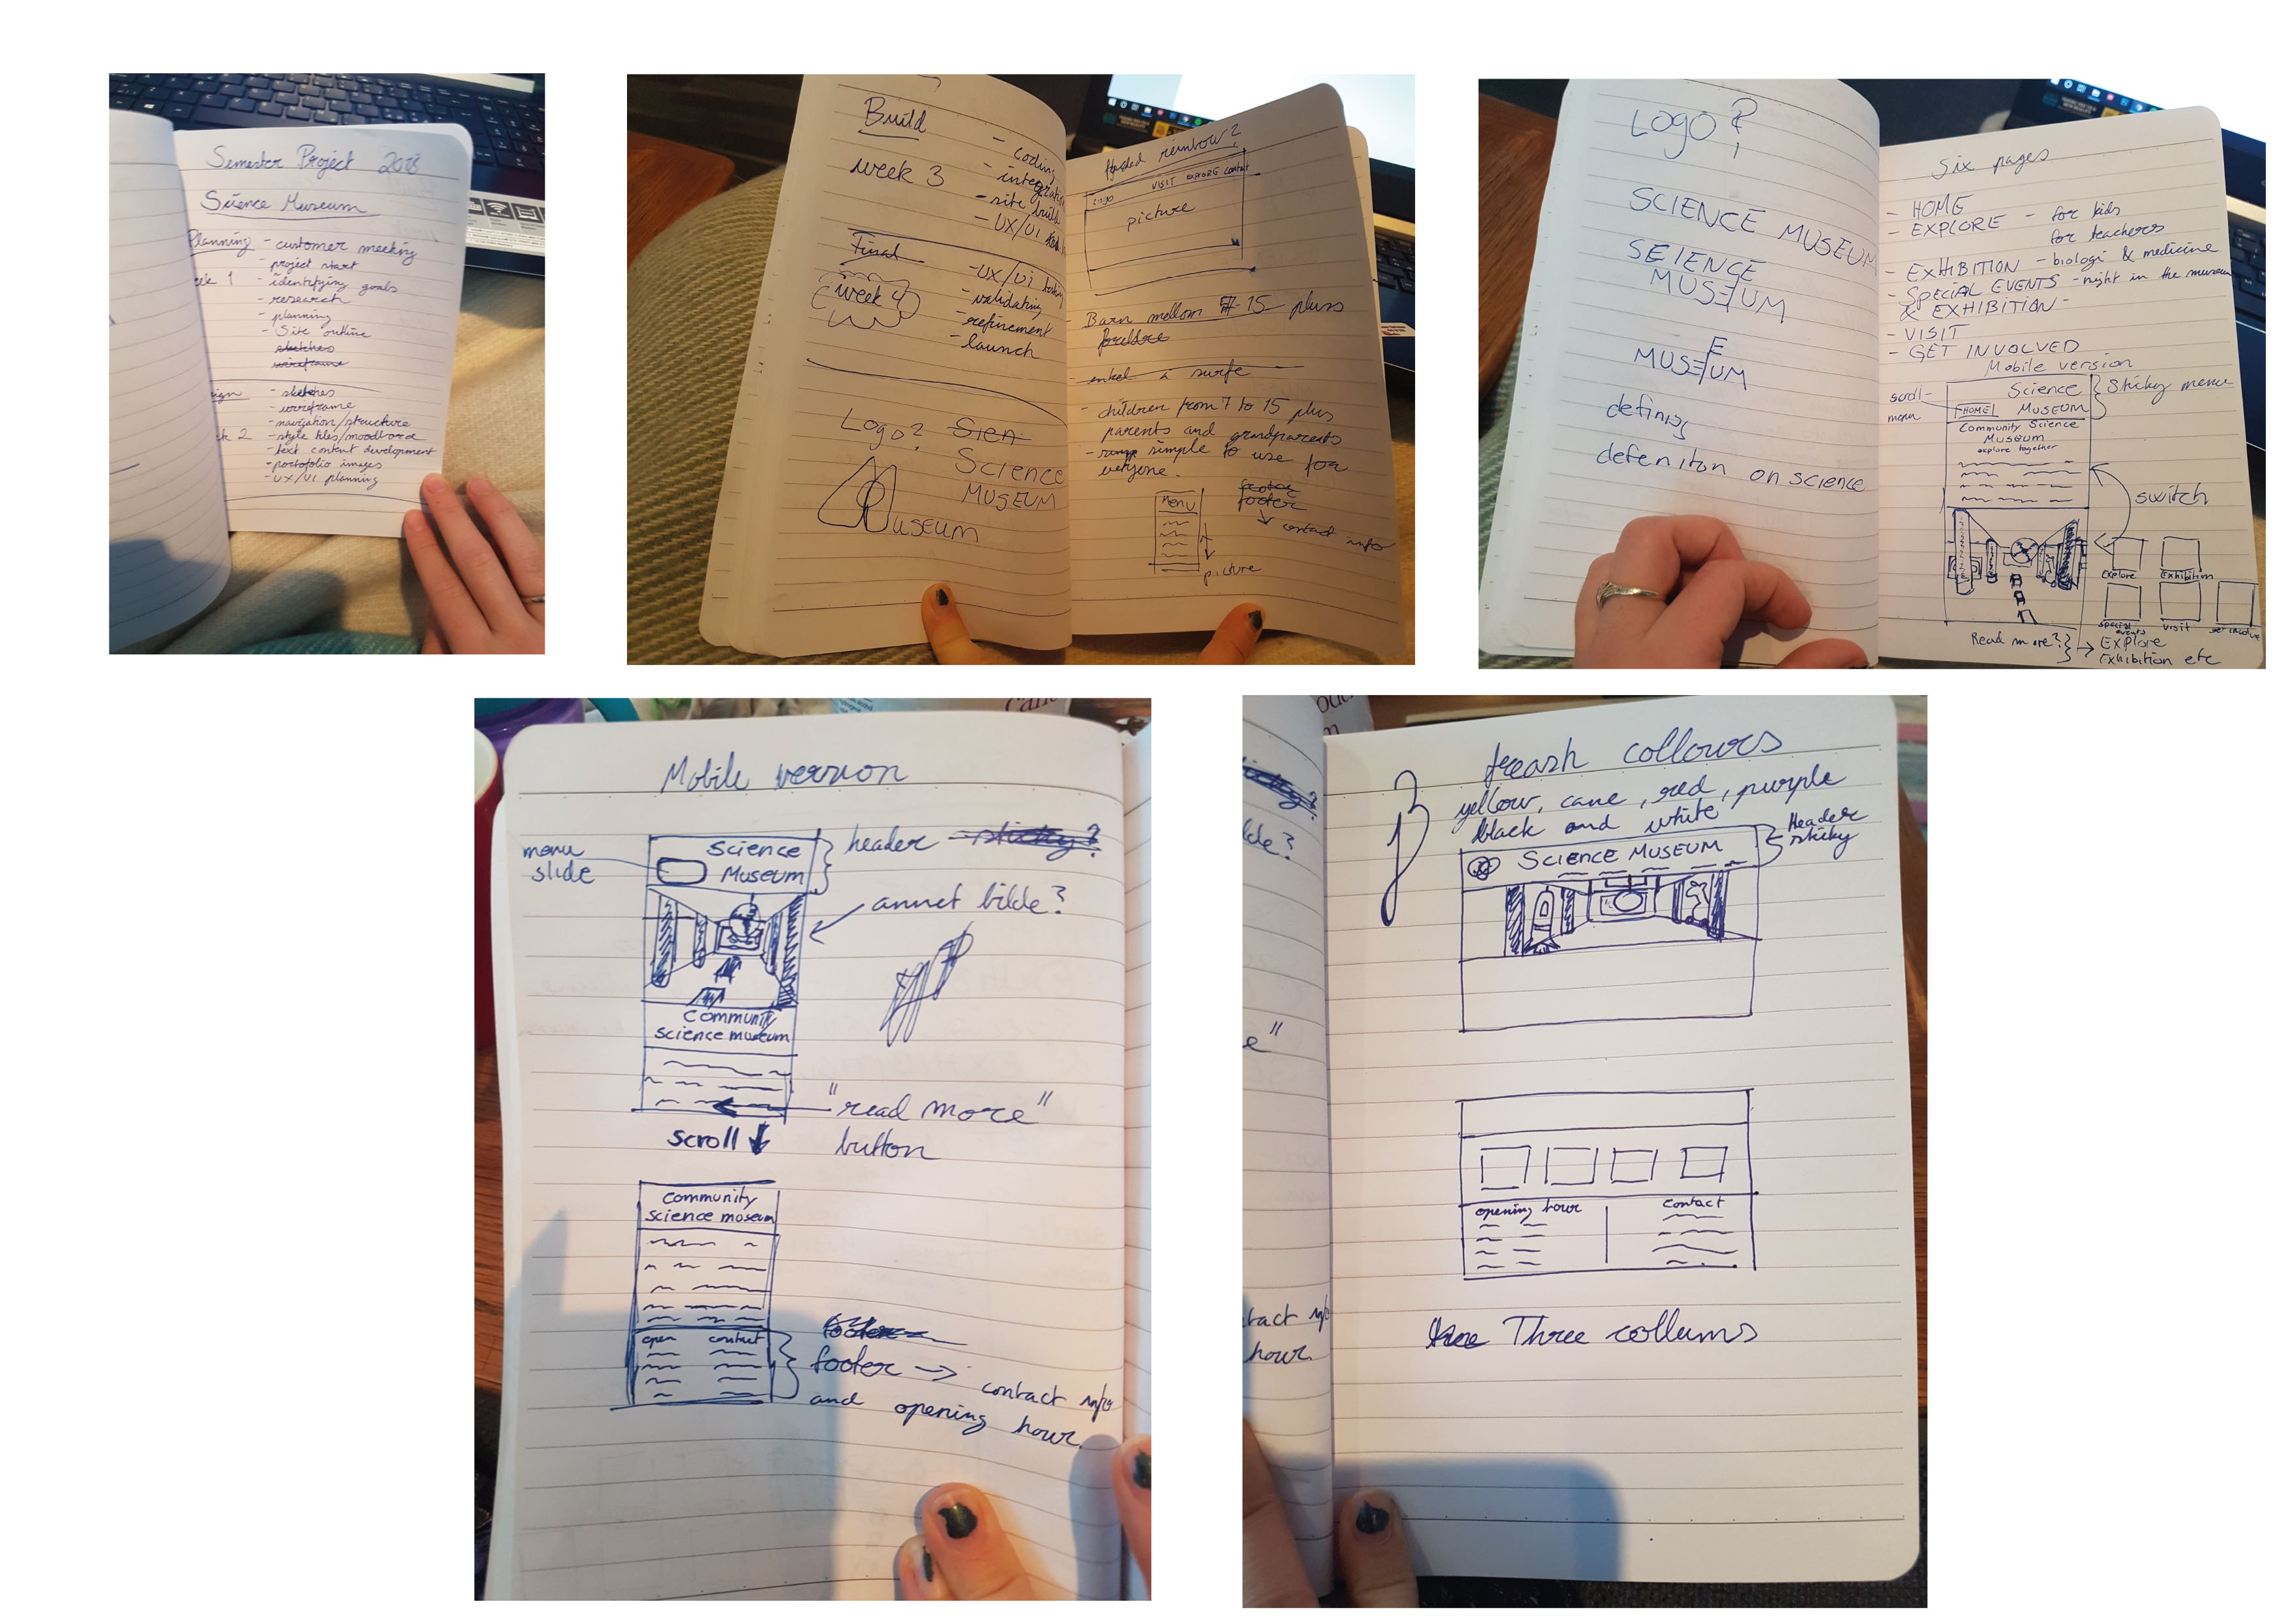 Semester Project 2018
Science Museum
Planning - customer meeting
- project start
- identifying goals
- research
- planning
- Site outline
sketches
wireframe
- sketches
- wireframe
- navigation/structure
- style tiles/moodbord
- text content development
- portofolio images
- UX/UI planning
Build
week 3
- coding
- integration
- site build
- UX/UI
Final
week 4
- UX/Ui
- validating
- refinement
- launch
Logo? Sien
Science
MUSEUM
Museum
rainbow?
VISIT EXPLORE contact
Logo
picture
- Barn mellom 7-15 pluss
foreldre
- enkel å surfe
- children from 7 to 15 plus
parents and grandparents
- simple to use for
everyone.
Menu
footer
footer
contact info
picture
Logo?
SCIENCE MUSEUM
SEIENCE
MUSEUM
E
MUSEUM
defining
defeniton on science
Six pages
- HOME
- EXPLORE - for kids
for teachers
- EXHIBITION - biologi & medicine
- SPECIAL EVENTS - night in the museum
& EXHIBITION -
- VISIT
- GET INVOLVED
Mobile version
scroll-
menu
Science
HOME MUSEUM
Sticky menu
Community Science
Museum
explore together
switch
Explore Exhibition
special
events
visit
Read more?
Explore
Exhibition etc
Mobile version
menu
slide
Science
Museum
header sticky?
annet bilde?
Community
science museum
"read more"
button
scroll
Community
science moseum
open contact
footer
footer → contact info
and opening hour.
freash collours
yellow, cane, red, purple
black and white
Science Museum
Header
sticky
de?
e"
tact info
hour.
opening hour contact
Three collums